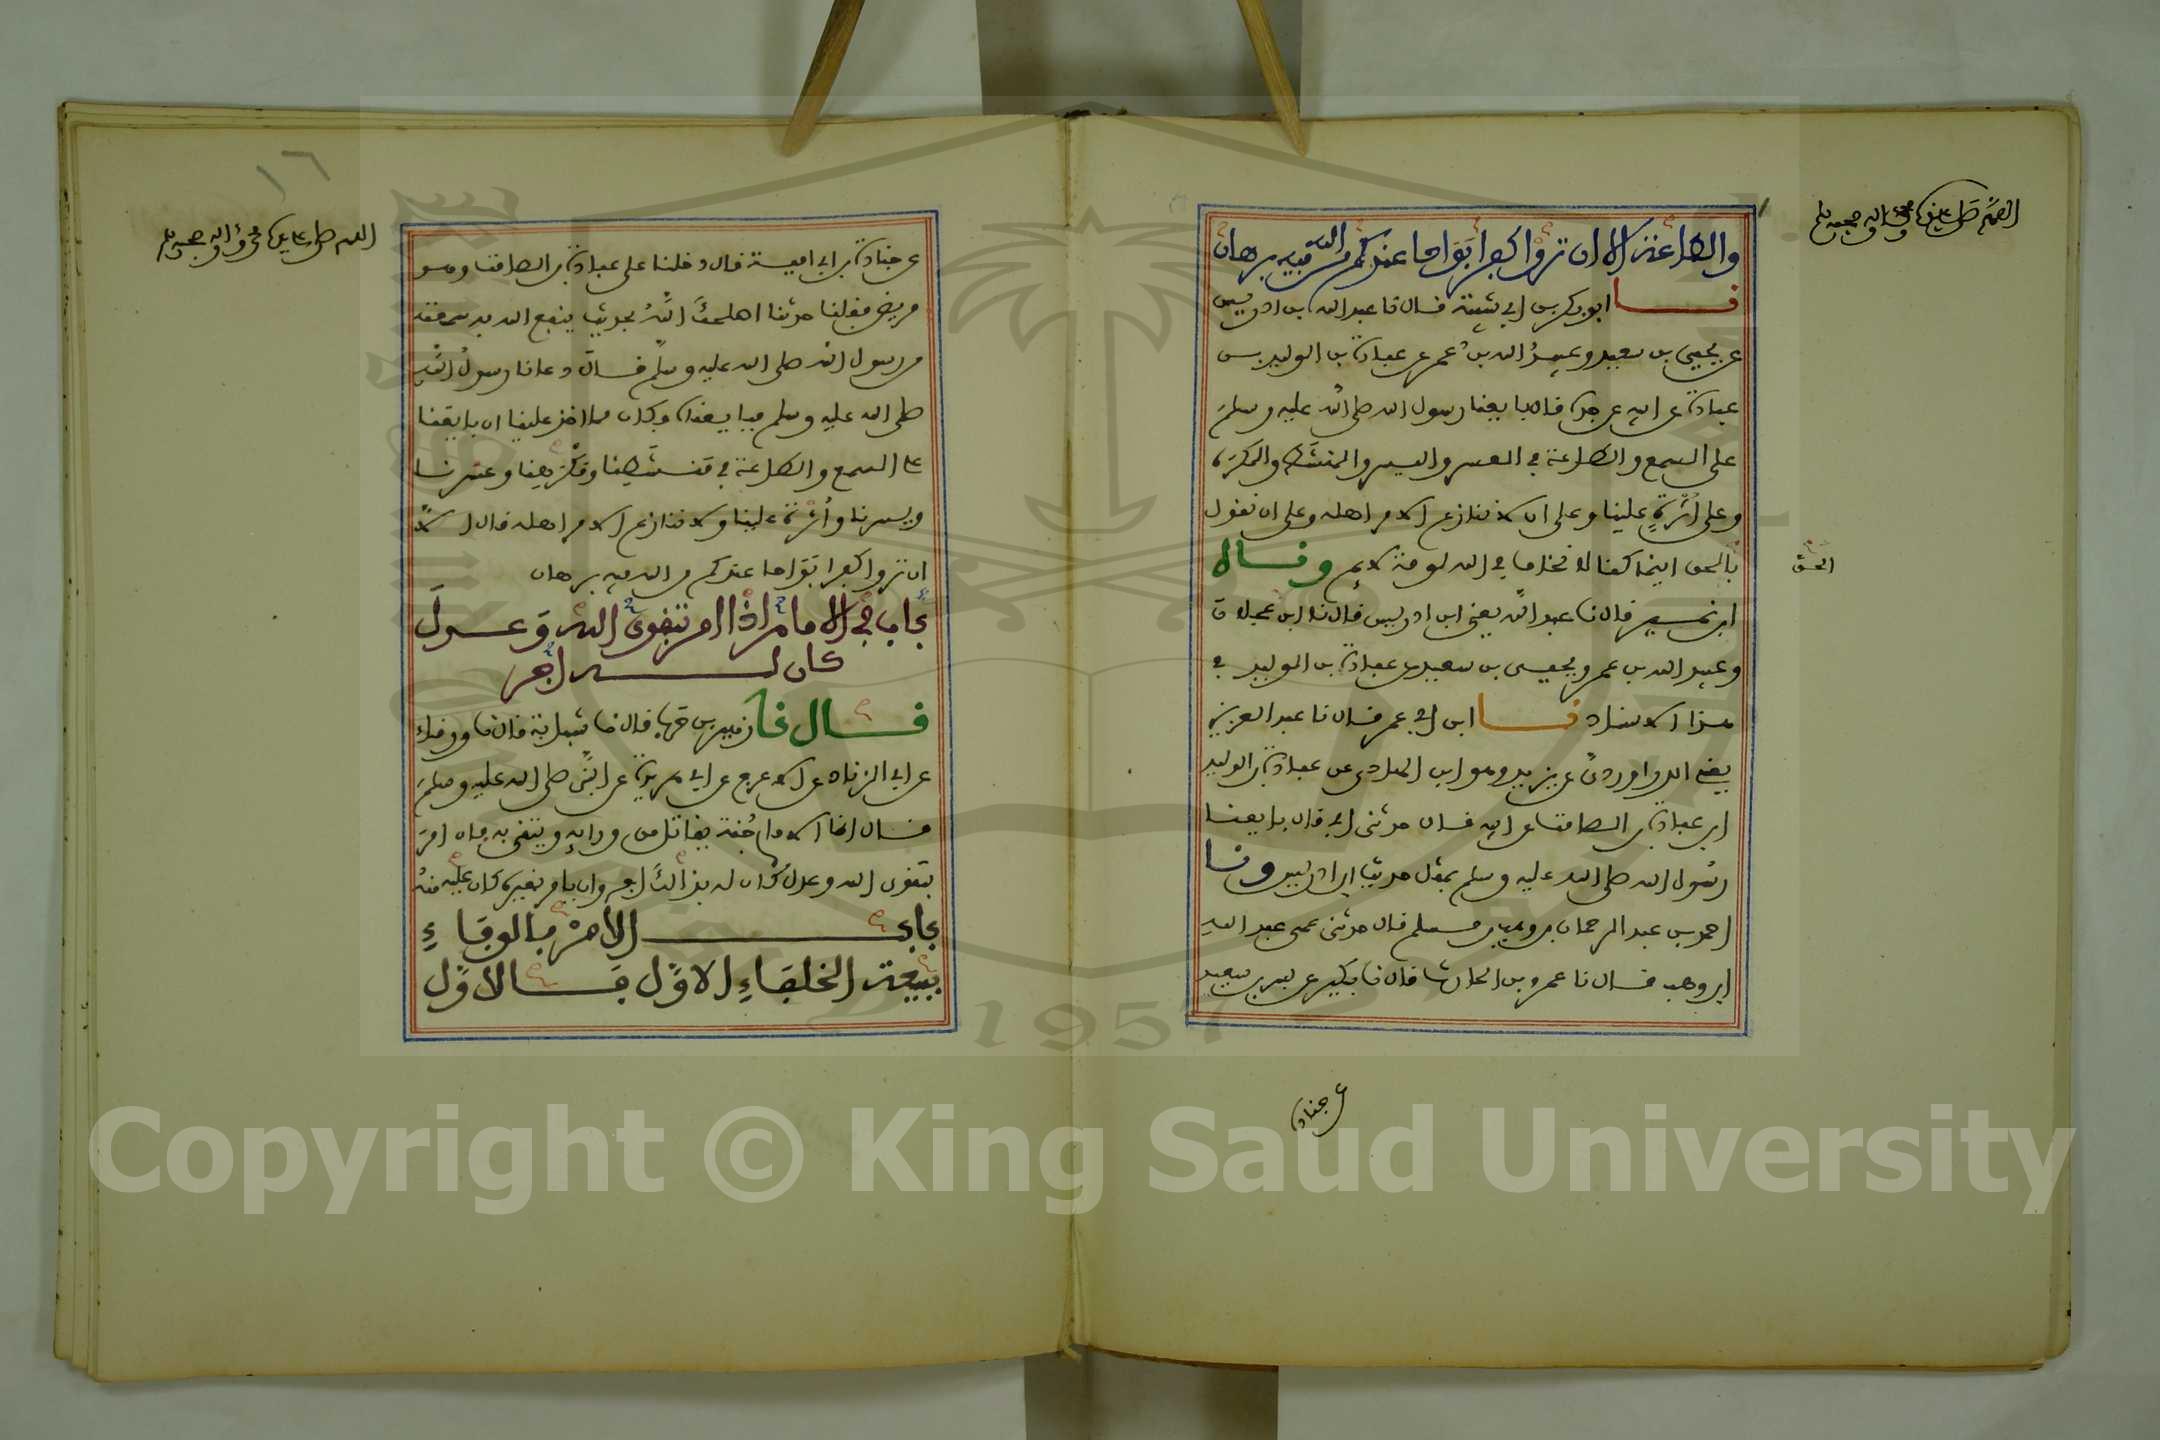 اللهم صل على سيدنا محمد وءاله وصحبه وسلم
والطاعة الا ان تروا كفرا بواحا عندكم من الله فيه برهان
نا ابو بكر بن ابي شيبة قال نا عبد الله بن ادريس
عن يحيى بن سعيد وعبيد الله بن عمر عن عبادة بن الوليد بن
عبادة عن ابيه عن جده قال بايعنا رسول الله صلى الله عليه وسلم
على السمع والطاعة في العسر واليسر والمنشط والمكره
وعلى اثرة علينا وعلى ان لا ننازع الامر اهله وعلى ان نقول
بالحق اينما كنا لا نخاف في الله لومة لائم وناه
الحق
ابن نمير قال نا عبد الله يعني ابن ادريس قال نا ابن عجلان
وعبيد الله بن عمر ويحيى بن سعيد عن عبادة بن الوليد في
هذا الاسناد نا ابن ابي عمر قال نا عبد العزيز
يعني الدراوردي عن يزيد وهو ابن الهادي عن عبادة بن الوليد
ابن عبادة بن الصامت عن ابيه قال حدثني ابي قال بايعنا
رسول الله صلى الله عليه وسلم بمثل حديث ابن ادريس ونا
احمد بن عبد الرحمان بن وهب بن مسلم قال حدثني عمي عبد الله
ابن وهب قال نا عمرو بن الحارث قال نا بكير عن بسر بن سعيد
عن جنادة
١٦
اللهم صل على سيدنا محمد وءاله وصحبه وسلم
عن جنادة بن ابي امية قال دخلنا على عبادة بن الصامت وهو
مريض فقلنا حدثنا اصلحك الله بحديث ينفع الله به سمعته
من رسول الله صلى الله عليه وسلم فقال دعانا رسول الله
صلى الله عليه وسلم فبايعناه وكان مما اخذ علينا ان بايعنا
على السمع والطاعة في منشطنا ومكرهنا وعسرنا
ويسرنا واثرة علينا ولا ننازع الامر اهله قال الا
ان تروا كفرا بواحا عندكم من الله فيه برهان
باب في الامام اذا امر بتقوى الله وعدل
كان له اجر
قال نا زهير بن حرب قال نا شبابة قال نا ورقاء
عن ابي الزناد عن الاعرج عن ابي هريرة عن النبي صلى الله عليه وسلم
قال انما الامام جنة يقاتل من ورايه ويتقى به فان امر
بتقوى الله وعدل كان له بذالك اجر وان يامر بغيره كان عليه منه
باب الامر بالوفاء
ببيعة الخلفاء الاول فالاول